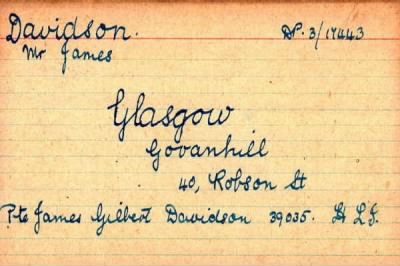 Davidson. DP. 3/17443
Mr James
Glasgow
Govanhill
40, Robson St
Pte James Gilbert Davidson 39035. H L I.